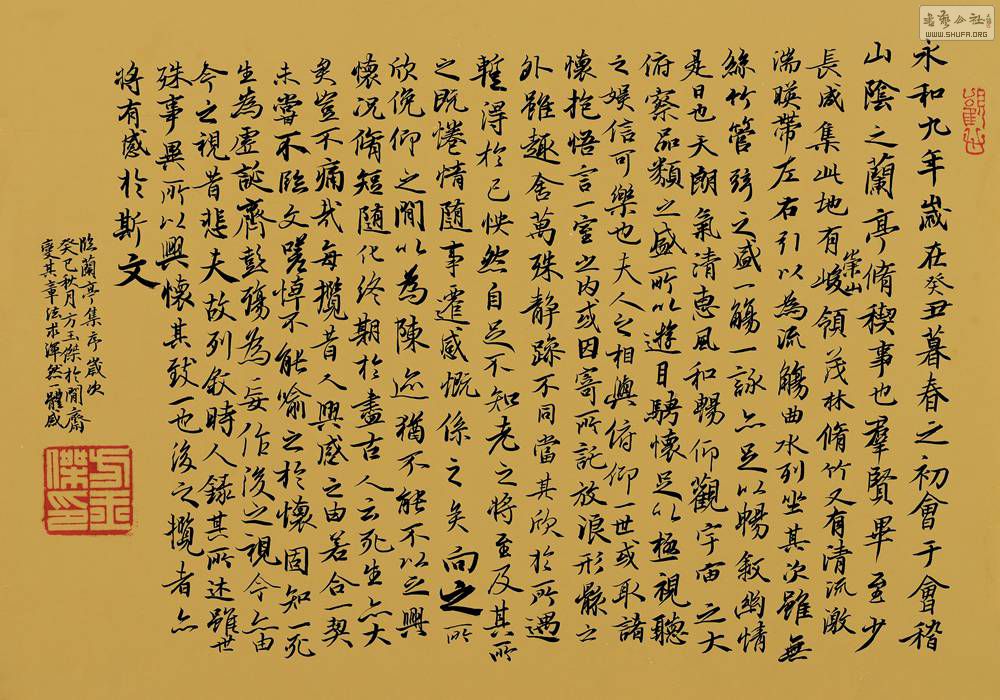 永和九年歲在癸丑暮春之初會于會稽
山陰之蘭亭脩稧事也羣賢畢至少
長咸集此地有崇山峻領茂林脩竹又有清流激
湍暎帶左右引以為流觴曲水列坐其次雖無
絲竹管弦之盛一觴一詠亦足以暢敘幽情
是日也天朗氣清惠風和暢仰觀宇宙之大
俯察品類之盛所以遊目騁懷足以極視聽
之娛信可樂也夫人之相與俯仰一世或取諸
懷抱悟言一室之內或因寄所託放浪形骸之
外雖趣舍萬殊静躁不同當其欣於所遇
蹔得於己怏然自足不知老之將至及其所
之既惓情隨事遷感慨係之矣向之所
欣俛仰之閒以為陳迹猶不能不以之興
懷况脩短隨化終期於盡古人云死生亦大
矣豈不痛哉每攬昔人興感之由若合一契
未嘗不臨文嗟悼不能喻之於懷固知一死
生為虛誕齊彭殤為妄作後之視今亦由
今之視昔悲夫故列敘時人錄其所述雖世
殊事異所以興懷其致一也後之攬者亦
將有感於斯文
臨蘭亭集序歲次
癸巳秋月方玉傑於閒齋
變其章法求渾然一體感
方玉
傑印
書藝公社
WWW.SHUFA.ORG